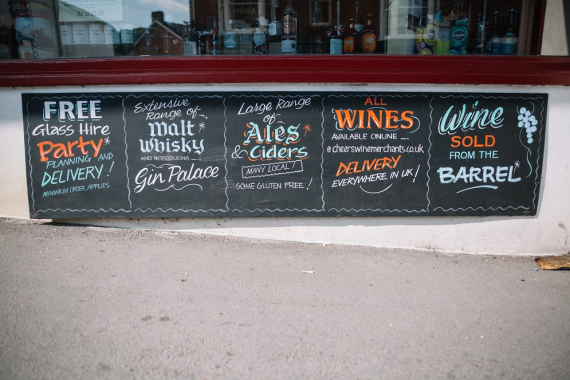 FREE
Glass Hire
Party*
PLANNING AND
DELIVERY!
MINIMUM ORDER APPLIES
Extensive
Range of
Malt
Whisky
AND INTRODUCING
Gin Palace
Large Range
of
Ales
& Ciders
MANY LOCAL!
SOME GLUTEN FREE!
ALL
WINES
AVAILABLE ONLINE ...
@cheerswinemerchants.co.uk
DELIVERY
EVERYWHERE IN UK!
Wine
SOLD
FROM THE
BARREL*